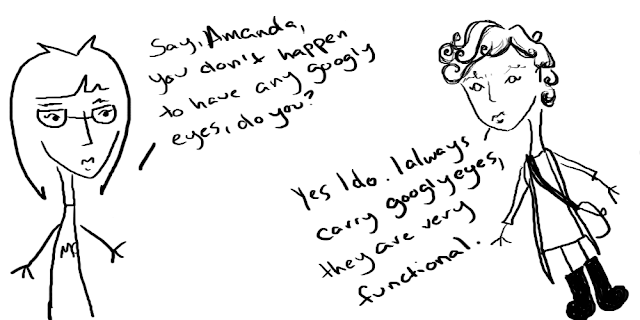 Say, Amanda,
you don't happen
to have any googly
eyes, do you?
Yes I do. I always
carry googly eyes,
they are very
functional.